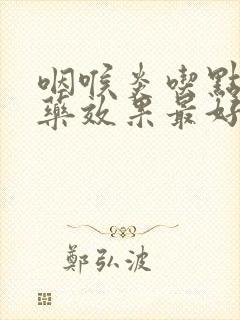 咽喉炎喫點
藥效果最好
鄭弘波